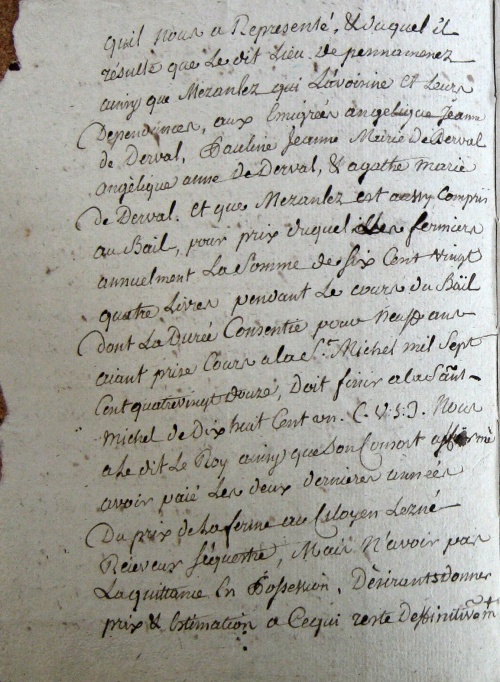 quil nous a Representé, & duquel il
résulte que Le dit Lieu de pennamenez
ainsy que Mezanlez qui Lavoinne et Leurs
Dependances, aux Emigrées angelique Jeanne
de Derval, Pauline Jeanne Marie de Derval
angélique anne de Derval, & agathe marie
de Derval. et que Mezanlez est aussy Compris
au Bail, pour prix duquel les fermiers
annuelment La Somme de six Cent vingt
quatre Livres pendant Le cours du Bail
dont La Durée Consentie pour neuff ans
aiant prise Cours a la St. Michel mil Sept
Cent quatre vingt douze, doit finir a la Saint
Michel de Dix huit Cent un. C.V.S.J. Nous
a Le dit Le Roy ainsy que Son Consort affirmé
avoir paié Les deux dernieres années
Du prix de La ferme au Citoyen Lezné
Receveur séquestre, Mais N'avoir pas
La quittance En Possession. Désirants donner
prix & Estimation a Cequi reste Deffinitivemt